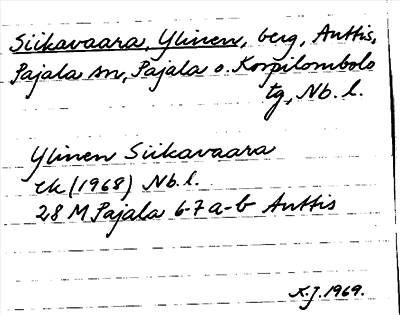 Siikavaara, Ylinen, berg, Anttis,
Pajala sn, Pajala o. Korpilombolo
tg, Nb. l.
Ylinen Siikavaara
ek (1968) Nb. l.
28 M Pajala 6-7 a-b Anttis
K.J. 1969.